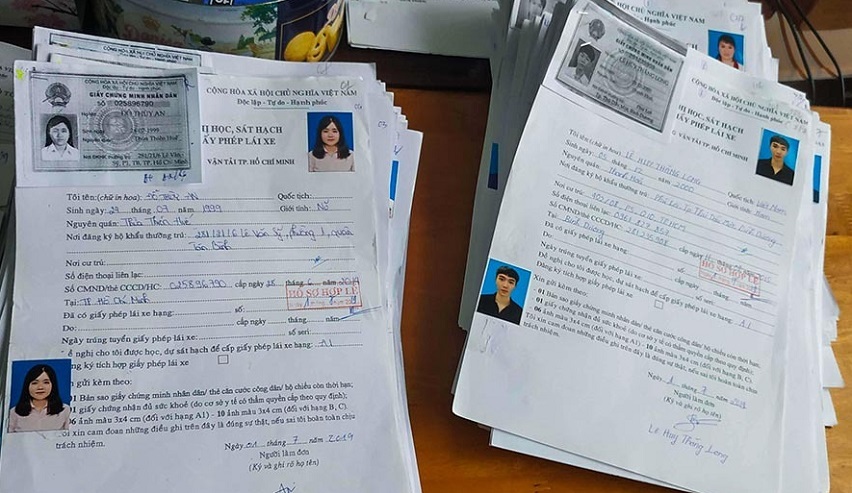 CỘNG HÒA XÃ HỘI CHỦ NGHĨA VIỆT NAM
Độc lập - Tự do - Hạnh phúc
GIẤY CHỨNG MINH NHÂN DÂN
SỐ 025896790
THÚY AN
1999
Thừa Thiên Huế
281/21/6 Lê Văn
P1, TB, TP. Hồ Chí Minh
CỘNG HÒA XÃ HỘI CHỦ NGHĨA VIỆT NAM
Độc lập - Tự do - Hạnh phúc
HỊ HỌC, SÁT HẠCH
ẤY PHÉP LÁI XE
VẬN TẢI TP. HỒ CHÍ MINH
Tôi tên: (chữ in hoa) ĐỖ THÚY AN Quốc tịch:
Sinh ngày: 29 tháng 07 năm 1999 Giới tính: Nữ
Nguyên quán: Thừa Thiên Huế
Nơi đăng ký hộ khẩu thường trú: 281/21/6 Lê Văn Sỹ, phường 1, quận
Tân Bình
Nơi cư trú:
Số điện thoại liên lạc:
Số CMND/thẻ CCCD/HC: 025896790 cấp ngày 25 tháng 6 năm 2014
Tại: TP Hồ Chí Minh
HỒ SƠ HỢP LỆ
Đã có giấy phép lái xe hạng: số:
Do: cấp ngày tháng năm
Ngày trúng tuyển giấy phép lái xe: số seri:
Đề nghị cho tôi được học, dự sát hạch để cấp giấy phép lái xe hạng: A1
ăng ký tích hợp giấy phép lái xe
in gửi kèm theo:
01 Bản sao giấy chứng minh nhân dân/ thẻ căn cước công dân/ hộ chiếu còn thời hạn;
01 giấy chứng nhận đủ sức khoẻ (do cơ sở y tế có thẩm quyền cấp theo quy định);
06 ảnh màu 3x4 cm (đối với hạng A1) - 10 ảnh màu 3x4 cm (đối với hạng B, C).
ôi xin cam đoan những điều ghi trên đây là đúng sự thật, nếu sai tôi hoàn toàn chịu
trách nhiệm.
Ngày 01 tháng 7 năm 2019
Người làm đơn
(Ký và ghi rõ họ tên)
An
HỘI CHỦ NGHĨA VIỆT NAM
Tự do - Hạnh phúc
GIẤY CHỨNG MINH NHÂN DÂN
CỘNG HÒA XÃ HỘI CHỦ NGHĨA VIỆT NAM
Độc lập - Tự do - Hạnh phúc
HỊ HỌC, SÁT HẠCH
ẤY PHÉP LÁI XE
VẬN TẢI TP. HỒ CHÍ MINH
Tôi tên: (chữ in hoa) LÊ HUY THĂNG LONG
Sinh ngày: 05 tháng 12 năm 2000 Quốc tịch: Việt Nam
Nguyên quán: Thanh Hoá Giới tính: Nam
Nơi đăng ký hộ khẩu thường trú:
Nơi cư trú:
Số điện thoại liên lạc:
Số CMND/thẻ CCCD/HC:
Tại: Bình Dương
HỒ SƠ HỢP LỆ
Đã có giấy phép lái xe hạng:
Do: cấp ngày tháng năm
Ngày trúng tuyển giấy phép lái xe: số seri:
Đề nghị cho tôi được học, dự sát hạch để cấp giấy phép lái xe hạng: A1
Đăng ký tích hợp giấy phép lái xe
Xin gửi kèm theo:
- 01 Bản sao giấy chứng minh nhân dân/ thẻ căn cước công dân/ hộ chiếu còn thời hạn;
- 01 giấy chứng nhận đủ sức khoẻ (do cơ sở y tế có thẩm quyền cấp theo quy định);
- 06 ảnh màu 3x4 cm (đối với hạng A1) - 10 ảnh màu 3x4 cm (đối với hạng B, C).
Tôi xin cam đoan những điều ghi trên đây là đúng sự thật, nếu sai tôi hoàn toàn chịu
trách nhiệm.
Ngày 1 tháng 7 năm 2019
Người làm đơn
(Ký và ghi rõ họ tên)
Lê Huy Thăng Long